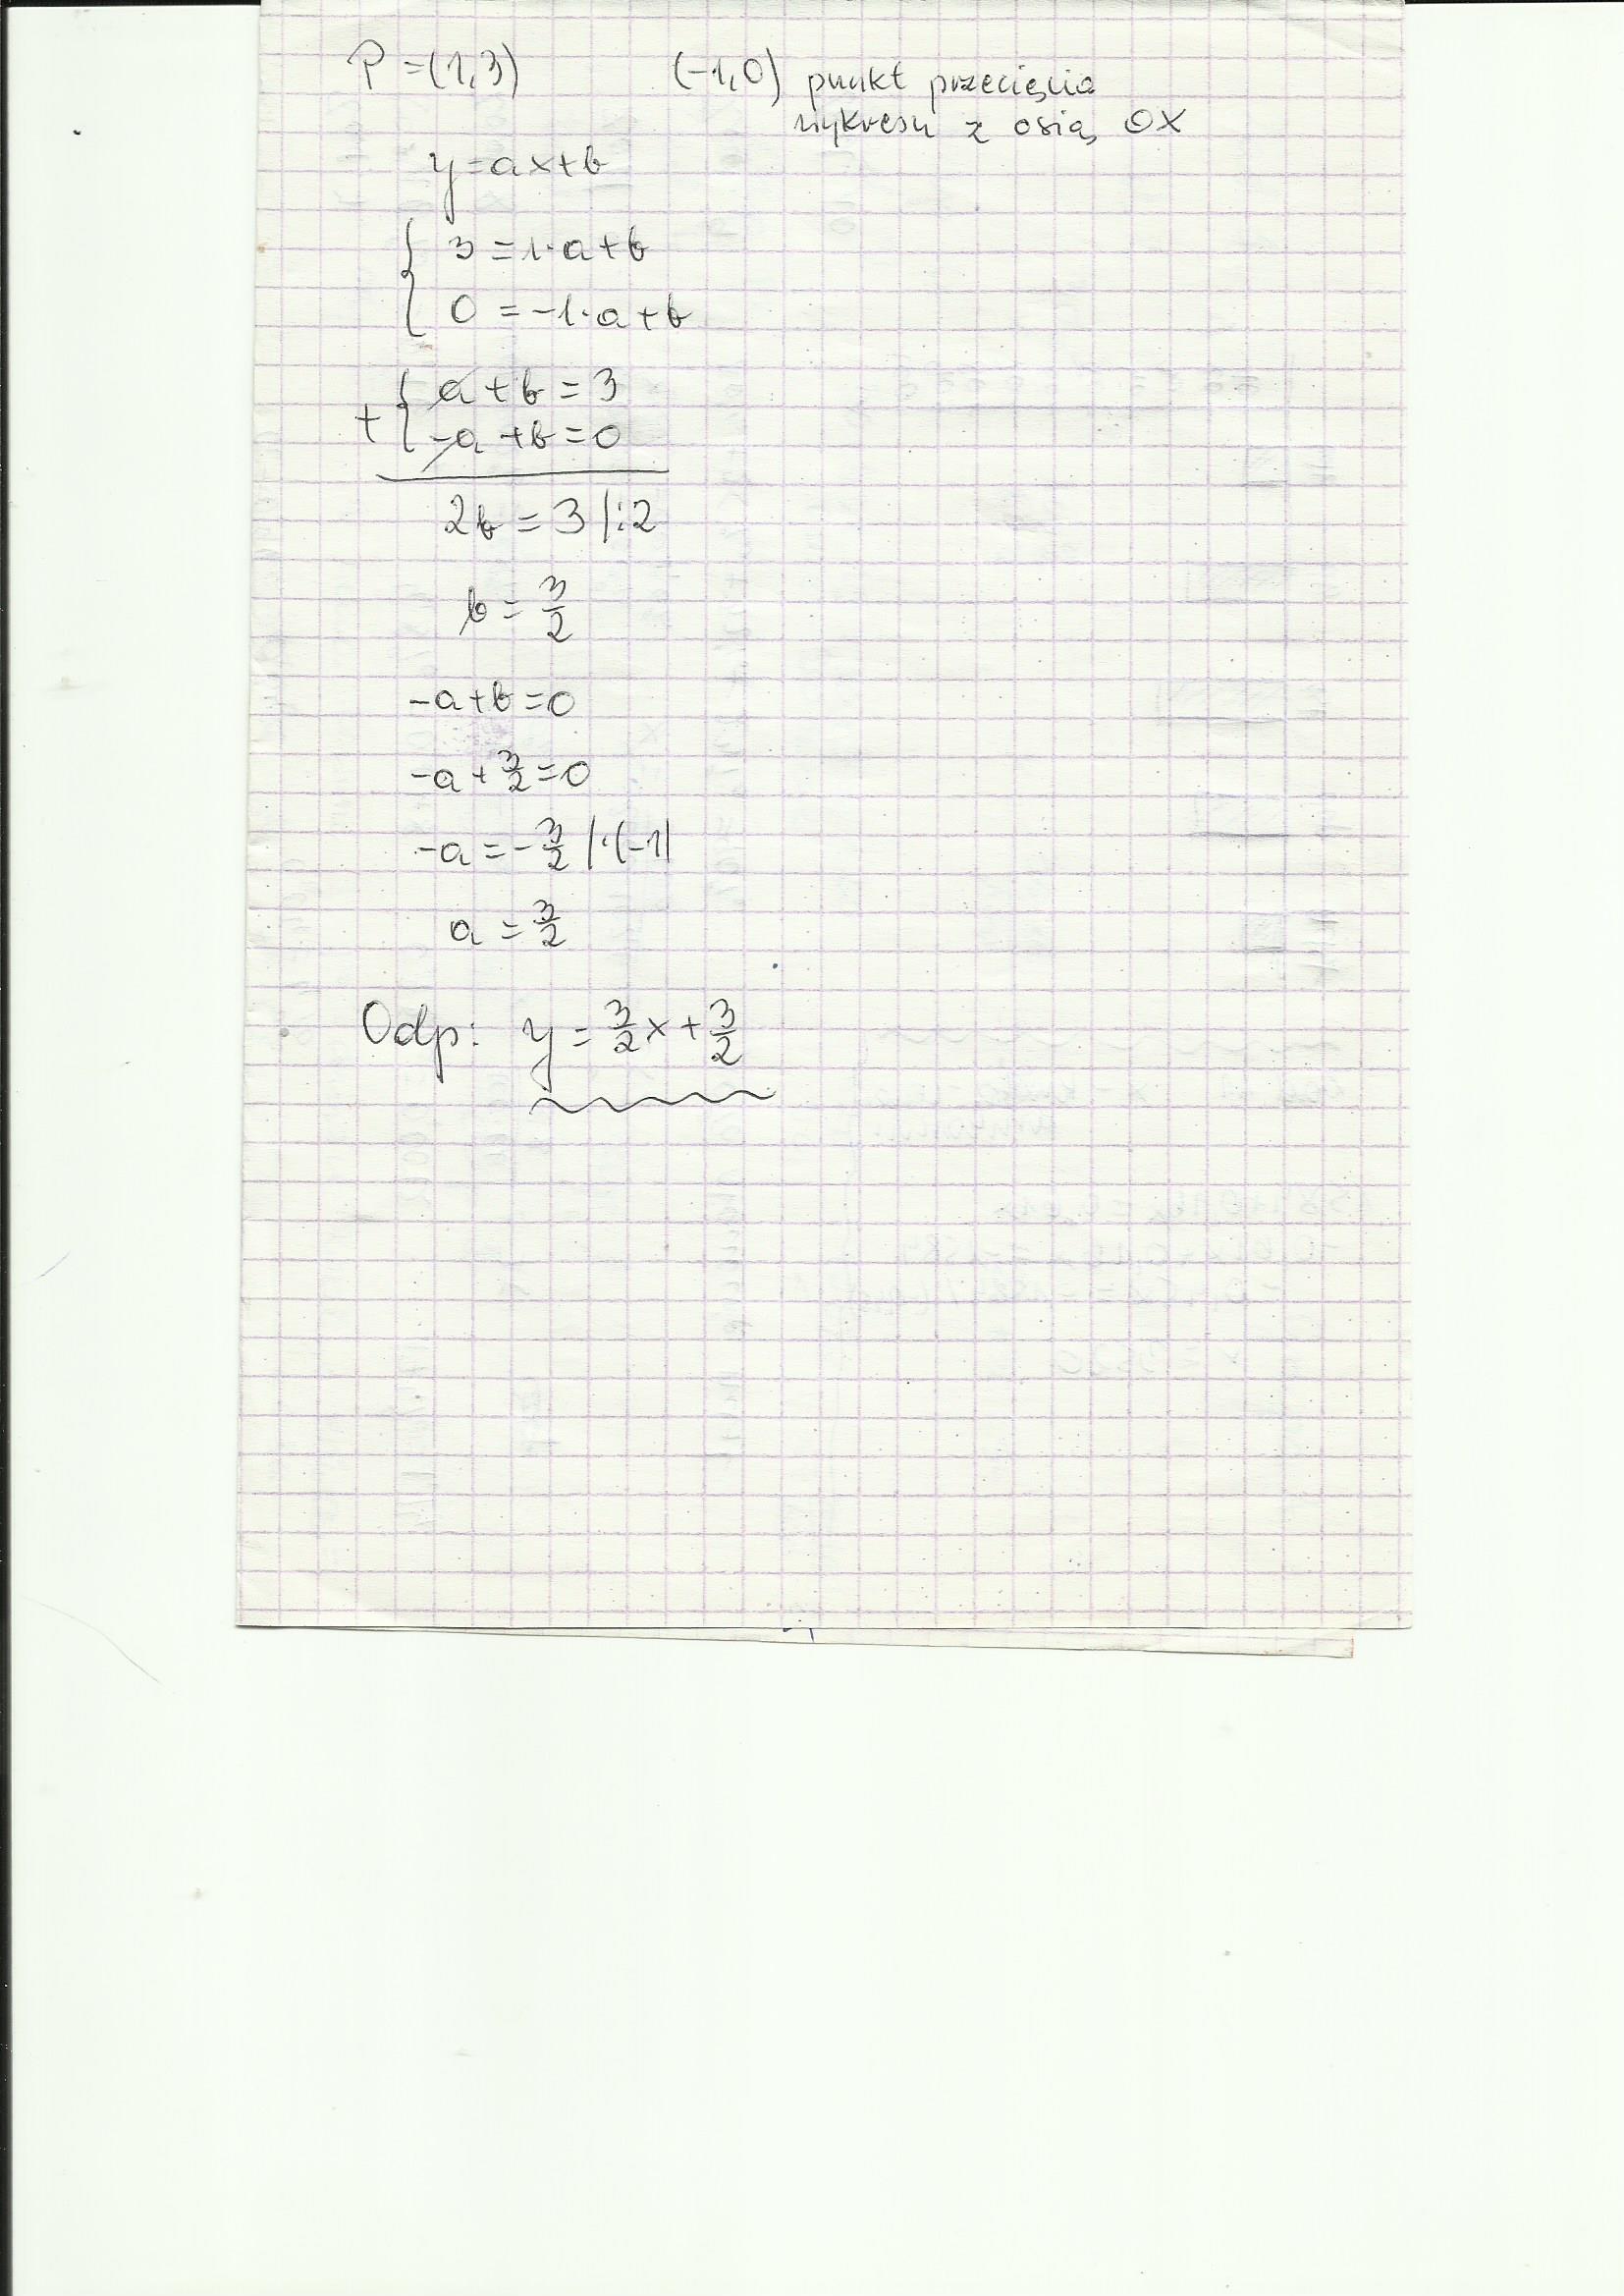 P = (1,3) (-1,0) punkt przecięcia
wykresu z osią OX
y = ax + b
{ 3 = 1·a + b
0 = -1·a + b
+ { a + b = 3
-a + b = 0
2b = 3 |:2
b = 3/2
-a + b = 0
-a + 3/2 = 0
-a = -3/2 |·(-1)
a = 3/2
Odp: y = 3/2 x + 3/2